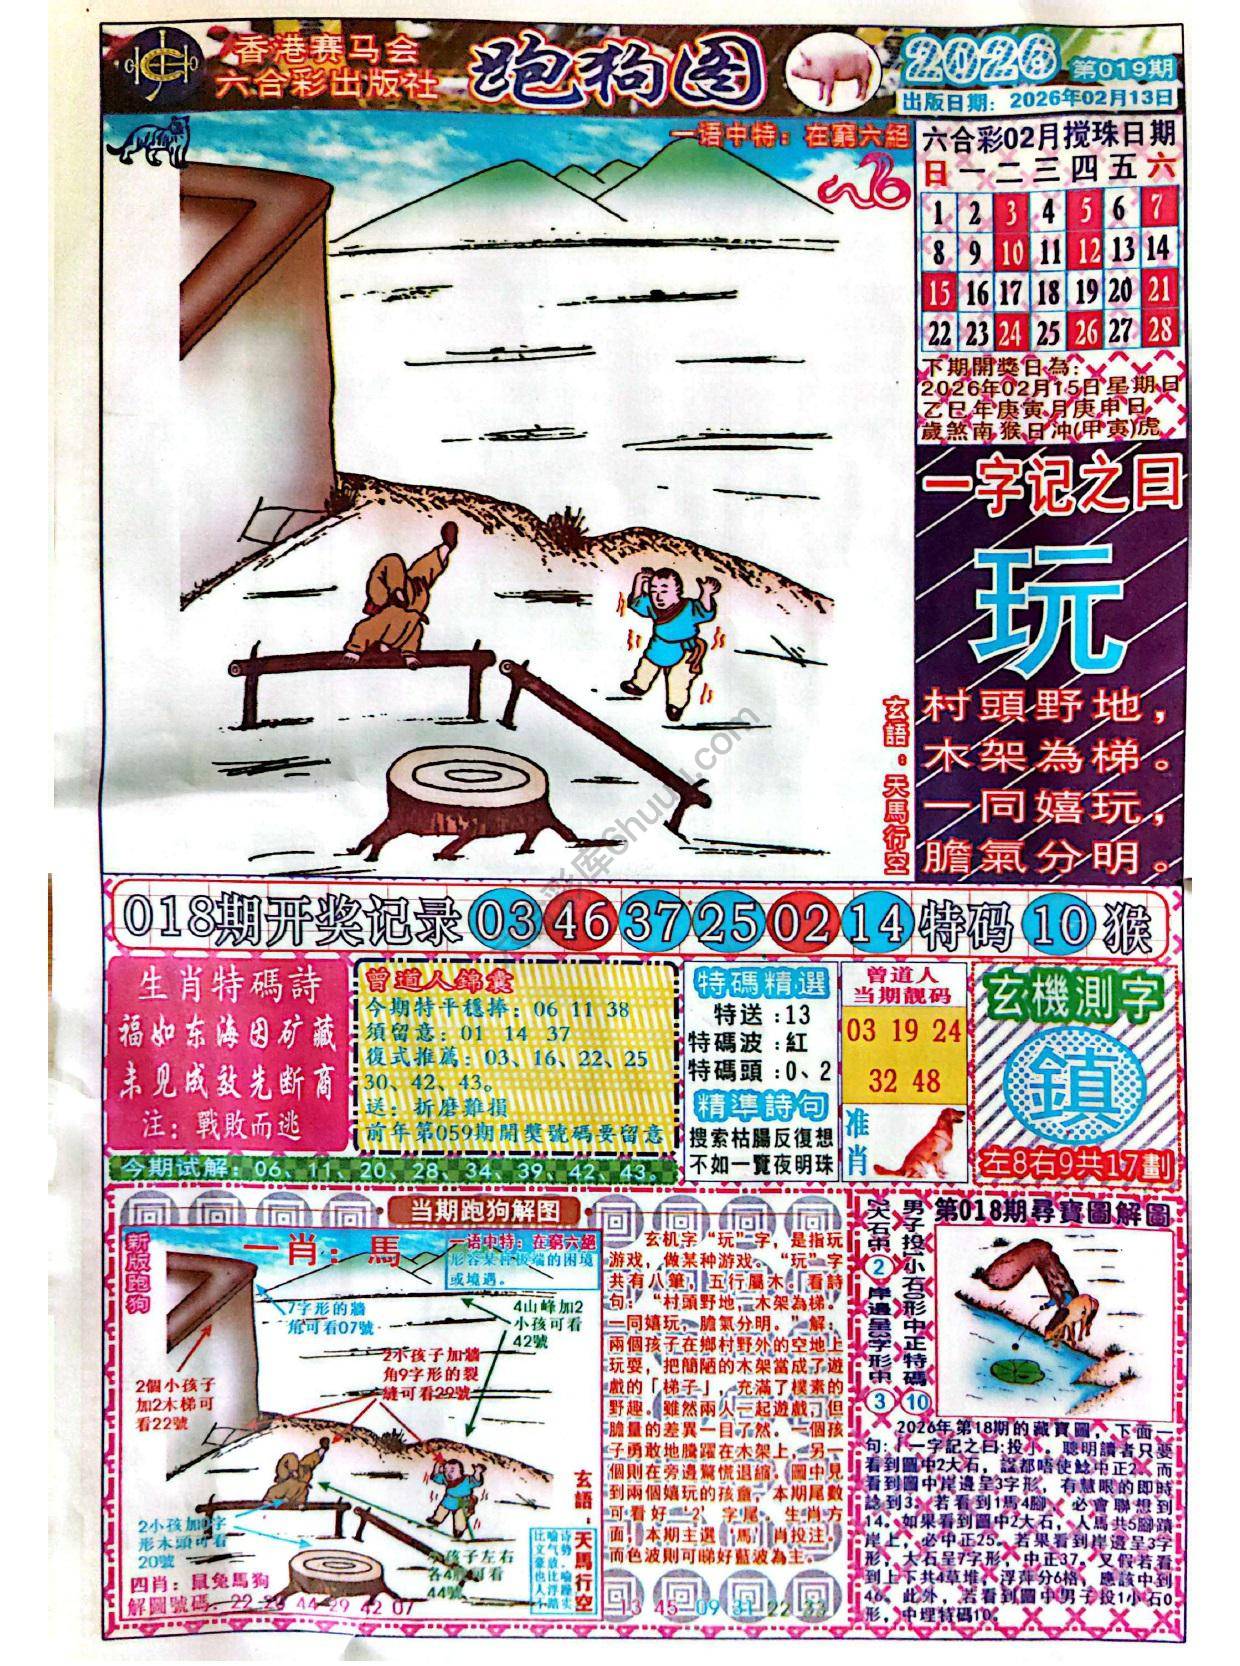 香港赛马会
六合彩出版社
跑狗图
2026
第019期
出版日期：2026年02月13日
一语中特：在窮六絕
六合彩02月搅珠日期
日 一 二 三 四 五 六
1 2 3 4 5 6 7
8 9 10 11 12 13 14
15 16 17 18 19 20 21
22 23 24 25 26 27 28
下期開獎日為：
2026年02月15日星期日
乙巳年庚寅月庚申日
歲煞南猴日冲(甲寅)虎
一字记之曰
玩
村頭野地，
木架為梯。
一同嬉玩，
膽氣分明。
玄語：天馬行空
018期开奖记录 03 46 37 25 02 14 特码 10 猴
生肖特碼詩
福如东海因矿藏
未见成效先断商
注：戰敗而逃
曾道人錦囊
今期特平穩捧：06 11 38
須留意：01 14 37
復式推薦：03、16、22、25
30、42、43。
送：折磨難損
前年第059期開獎號碼要留意
今期试解：06、11、20、28、34、39、42、43。
特碼精選
特送：13
特碼波：紅
特碼頭：0、2
精準詩句
搜索枯腸反復想
不如一覽夜明珠
曾道人
当期靓码
03 19 24
32 48
准肖
玄機測字
鎮
左8右9共17劃
当期跑狗解图
新版跑狗
一肖：馬
一语中特：在窮六絕
形容某种极端的困境
或境遇。
7字形的牆
角可看07號
4山峰加2
小孩可看
42號
2小孩子加牆
角9字形的裂
縫可看29號
2個小孩子
加2木梯可
看22號
2小孩加0字
形木頭可看
20號
小孩子左右
各4腳可看
44號
玄語：天馬行空
四肖：鼠兔馬狗
解圖號碼：22 20 44 29 42 07
玄机字“玩”字，是指玩
游戏，做某种游戏。“玩”字
共有八筆，五行屬木。看詩
句：“村頭野地，木架為梯。
一同嬉玩，膽氣分明。”解：
兩個孩子在鄉村野外的空地上
玩耍，把簡陋的木架當成了遊
戲的「梯子」，充滿了樸素的
野趣。雖然兩人一起遊戲，但
膽量的差異一目了然。一個孩
子勇敢地騰躍在木架上，另一
個則在旁邊驚慌退縮。圖中見
到兩個嬉玩的孩童，本期尾數
可看好“2”字尾，生肖方
面，本期主選“馬”肖投注，
而色波則可睇好藍波為主。
13 45 09 31 22 33
第018期尋寶圖解圖
男子投1小石0形中正特碼10
2 岸邊呈3字形中3
2026年第18期的藏寶圖，下面一
句：「一字記之曰：投」。聰明讀者只要
看到圖中2大石，誰都唔使諗中正2。而
看到圖中岸邊呈3字形，有慧眼的即時
諗到3。若看到1馬4腳，必會聯想到
14。如果看到圖中2大石，人馬共5腳蹟
岸上，必中正25。若果看到岸邊呈3字
形，大石呈7字形，中正37。又假若看
到上下共4草堆，浮萍分6格，應該中到
46。此外，若看到圖中男子投1小石0
形，中埋特碼10。